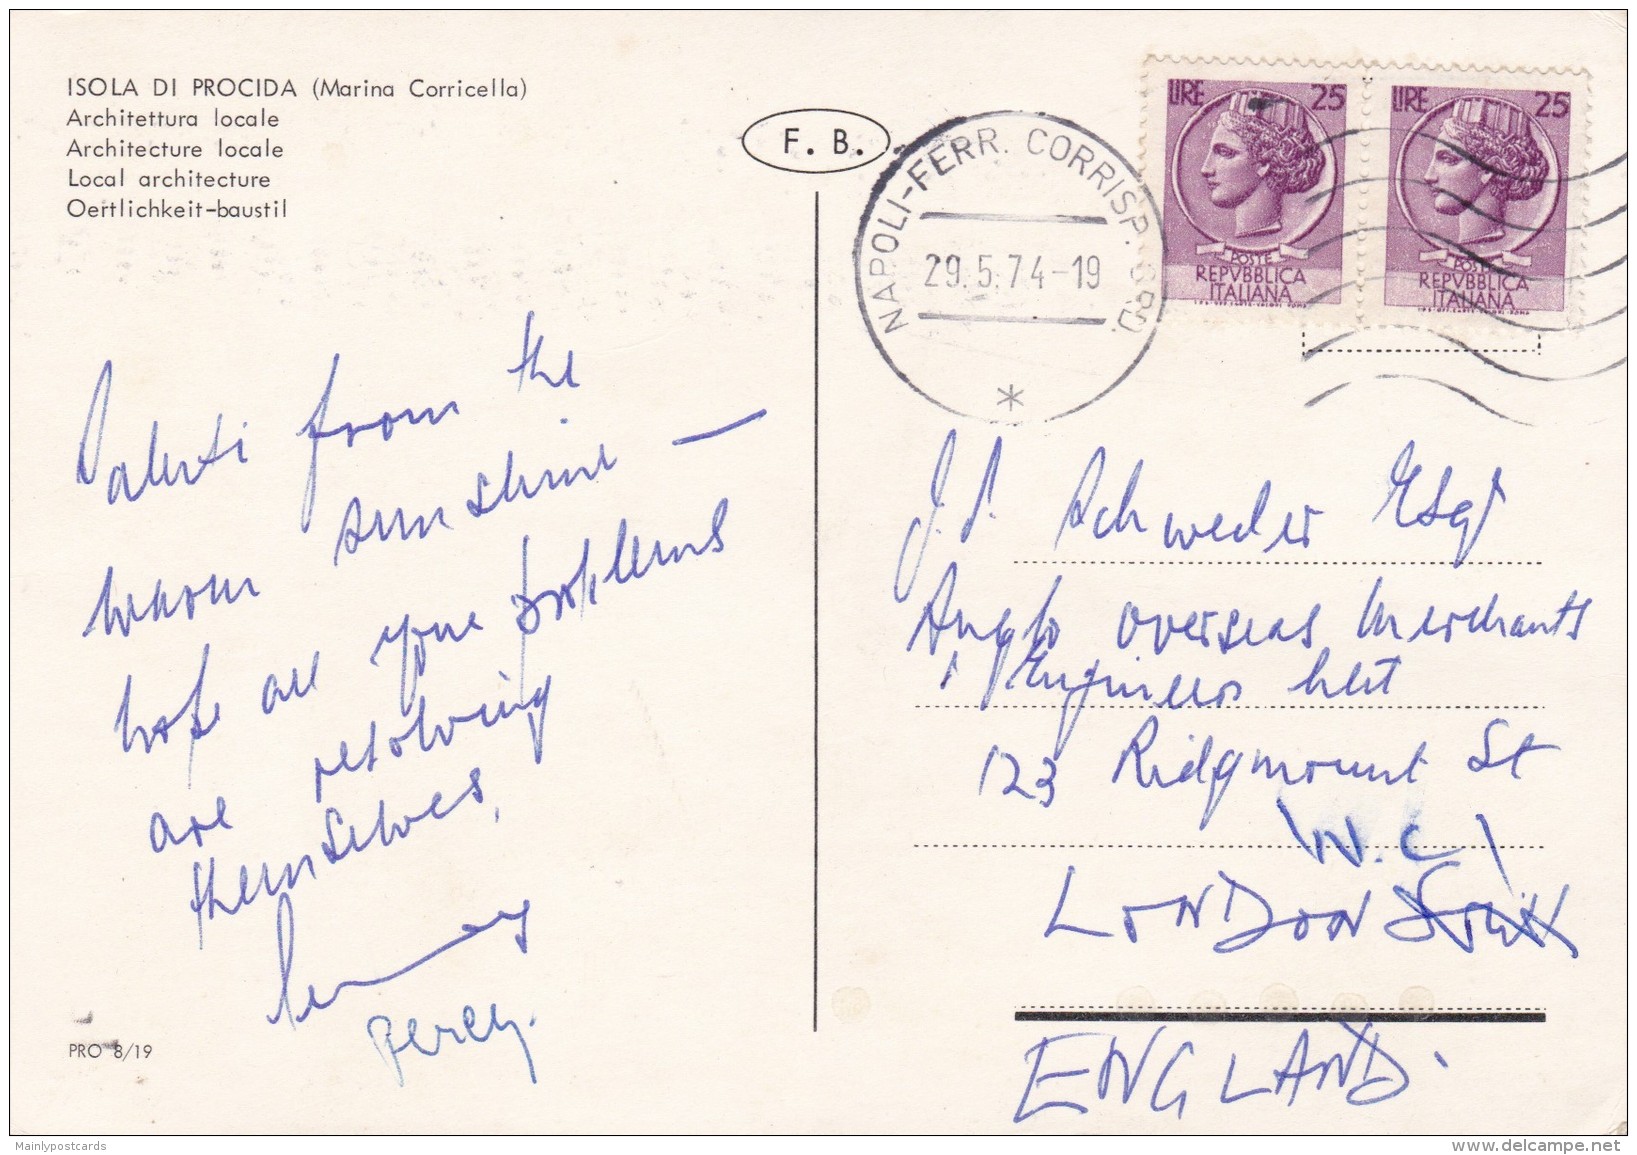 ISOLA DI PROCIDA (Marina Corricella)
Architettura locale
Architecture locale
Local architecture
Oertlichkeit-baustil
F. B.
NAPOLI-FERR. CORRISP.
29.5.74-19
LIRE 25
POSTE
REPVBBLICA
ITALIANA
LIRE 25
POSTE
REPVBBLICA
ITALIANA
from the
warm sunshine —
hope all your problems
are resolving
themselves,
Percy.
PRO 8/19
Schweder Esq
Anglo Overseas Merchants
Engineers
123 Ridgmount St
W.C.1
LONDON
ENGLAND.
Mainlypostcards
delcampe.net